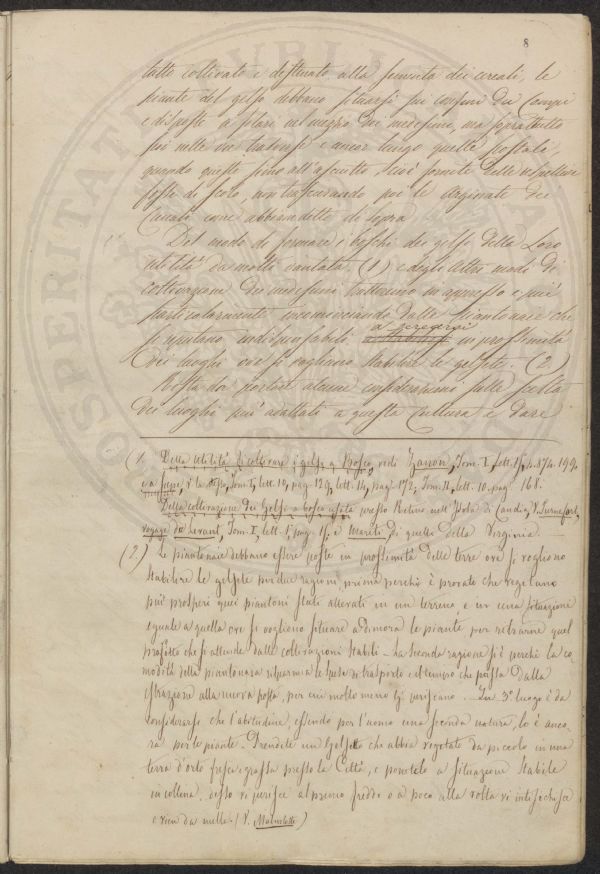 8
tutto coltivato e destinato alla semenza dei cereali, le
piante del gelso debbono situarsi sui confini dei Campi
e disposte a filari nel mezzo dei medesimi, ma soprattutto
poi nelle due e ancor lungo quelle
quando queste sino all'asciutto, cioè fornite delle rispettive
fosse di scolo, non trascurando poi le Arginate dei
Canali come abbiam detto di sopra
Del modo di formare i boschi dei gelsi della Loro
utilità da molti vantata (1) e degli altri modi di
coltivazione dei medesimi tratteremo in appresso e più
particolarmente incominciando dalle piantonaie che
si reputano indispensabili in prossimità
dei luoghi ove si vogliano stabilire le gelsete. (2)
Resta da portare alcune considerazioni sulla scelta
dei luoghi più adattati a questa Cultura e dare
(1. Della utilità di coltivare i gelsi a Bosco, vedi Zanon, Tom. I, lett. 174. 199,
e a siepe, v. lo stesso, Tom. I, lett. 10, pag. 129, lett. 14, pag. 172, Tom. II, lett. 10. pag. 168.
Della coltivazione dei Gelsi a bosco usata presso Retimo nell'Isola di Candia, V. Turnefort,
voyage du Levant, Tom. I, lett. 1, pag. e Mariti di quella della Virginia.
(2.) Le piantonaie debbano essere poste in prossimità delle terre ove si vogliono
stabilire le gelsete per due ragioni, prima perchè è provato che vegetano
più prosperi quei piantoni stati allevati in un terreno, e in una situazione
eguale a quella ove si vogliono situare a dimora le piante per ritrarne quel
profitto che si attende dalle coltivazioni stabili - La seconda ragione si è perchè la co
modità della piantonaia risparmia le spese di trasporto ed il tempo che passa dalla
estrazione alla nuova posta, per cui molto meno patiscano. - In 3º luogo è da
considerarsi che l'abitudine, essendo per l'uomo una seconda natura, lo è anco-
ra per le piante. - Prendete un Gelso che abbia vegetato da piccolo in una
terra d'orto fresca e grassa presso la Città, e ponetelo a situazione stabile
in collina, desso vi perisce al primo freddo o a poco alla volta vi intisichisce
e vien da nulla. (V. )